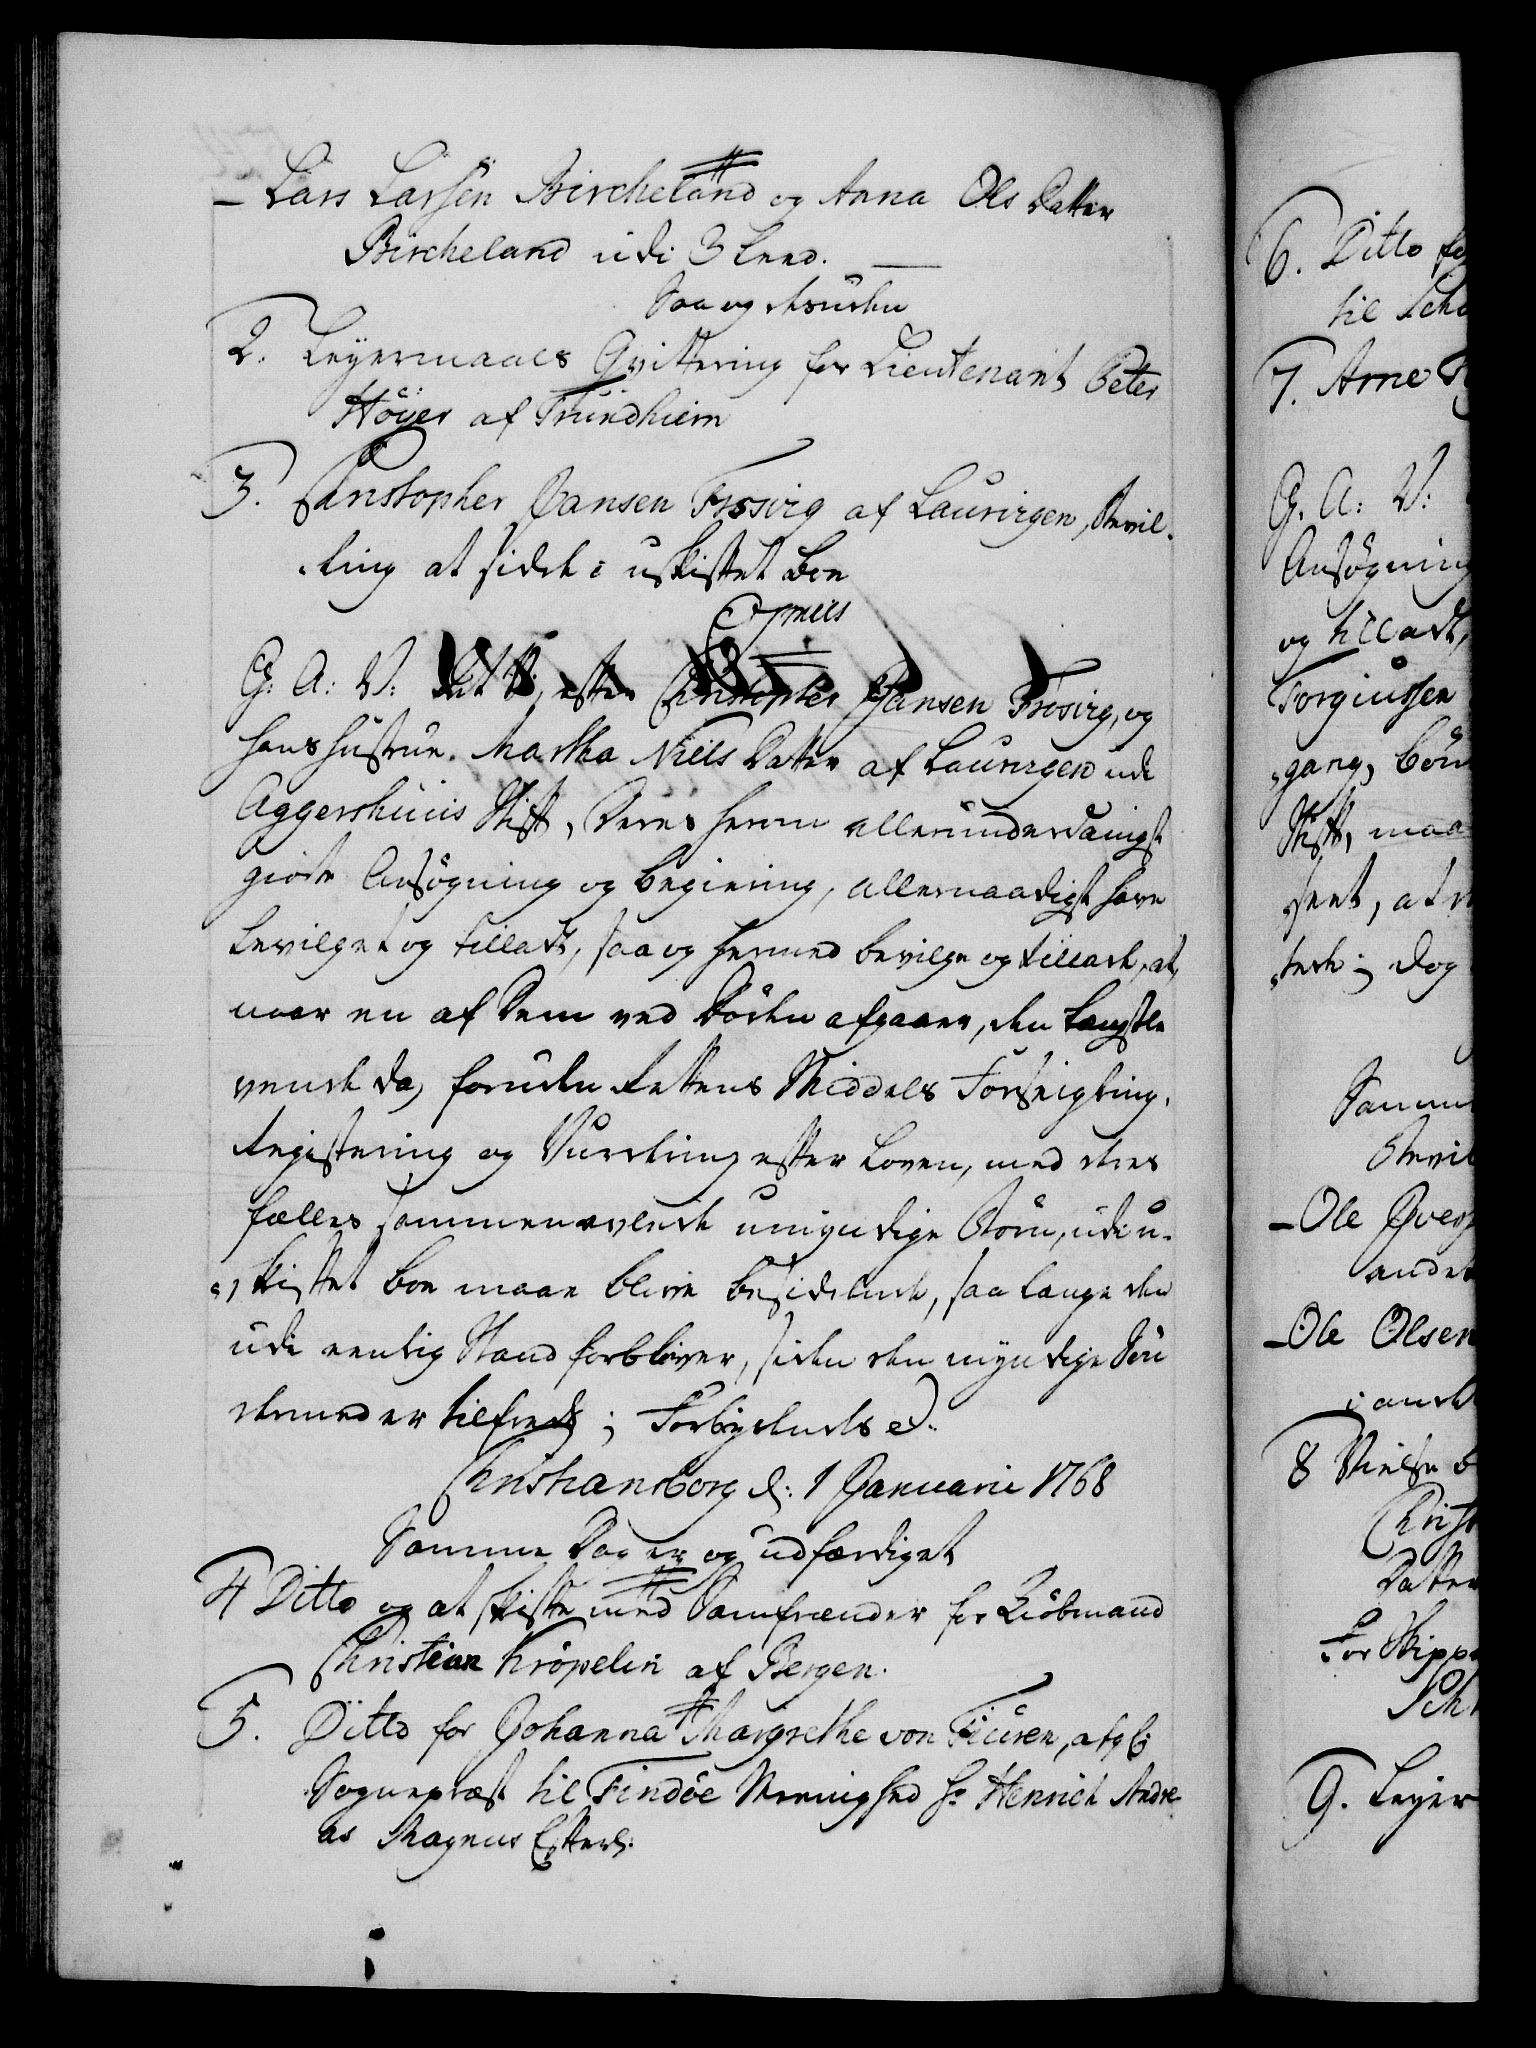 – Lars Larsen Bircheland og Anna Ols Datter
Bircheland udi 3 Leed.
Saa og desuden
2. Leyermaals Qvittering for Lieutenant Peter
Höyer af Trundhiem
3. Christopher Jansen Frosvig af Laurvigen, Bevil-
-ling at sidde i uskiftet Boe
Copiens
G: A: V: at Vi, efter Christopher Jansen Frosvig, og
hans Hustrue Martha Niels Datter af Laurvigen udi
Aggershuus Stift, Deres herom allerunderdanigst
giorte Ansøgning og begiering, allernaadigst have
bevilget og tilladt, saa og hermed bevilge og tillade, at,
naar en af Dem ved Døden afgaaer, den Længstle-
vende da, foruden Rettens Middels Forseigling,
Registering og Vurdering efter Loven, med deres
fælles sammenavlede umyndige Børn, udi u-
-skiftet boe maae blive besiddende, saa længe den
udi eenlig Stand forbliver, siden den myndige Søn
dermed er tilfreds; Forbydendes etc.
Christiansborg d: 1 Januarii 1768
Samme Dag er og udfærdiget
4 Ditto og at skifte med Samfrænder for Kiöbmand
Christian Kröpelin af Bergen.
5. Ditto for Johanna Margrethe von Fuiren, afg:
Sognepræst til Findöe Menighed Hr Henrich Andre-
as Magnus Efterl:
6. Ditto
til
7. Arne
G. A: V:
Ansøgning
og tilladt,
Torgiussen
-gang,
Stift, maa
-teede; dog
Samme
Bevil
– Ole
andet
– Ole Olsen
i andet
8
Christ
Datter
For Skipp
Sch
9. Leyer